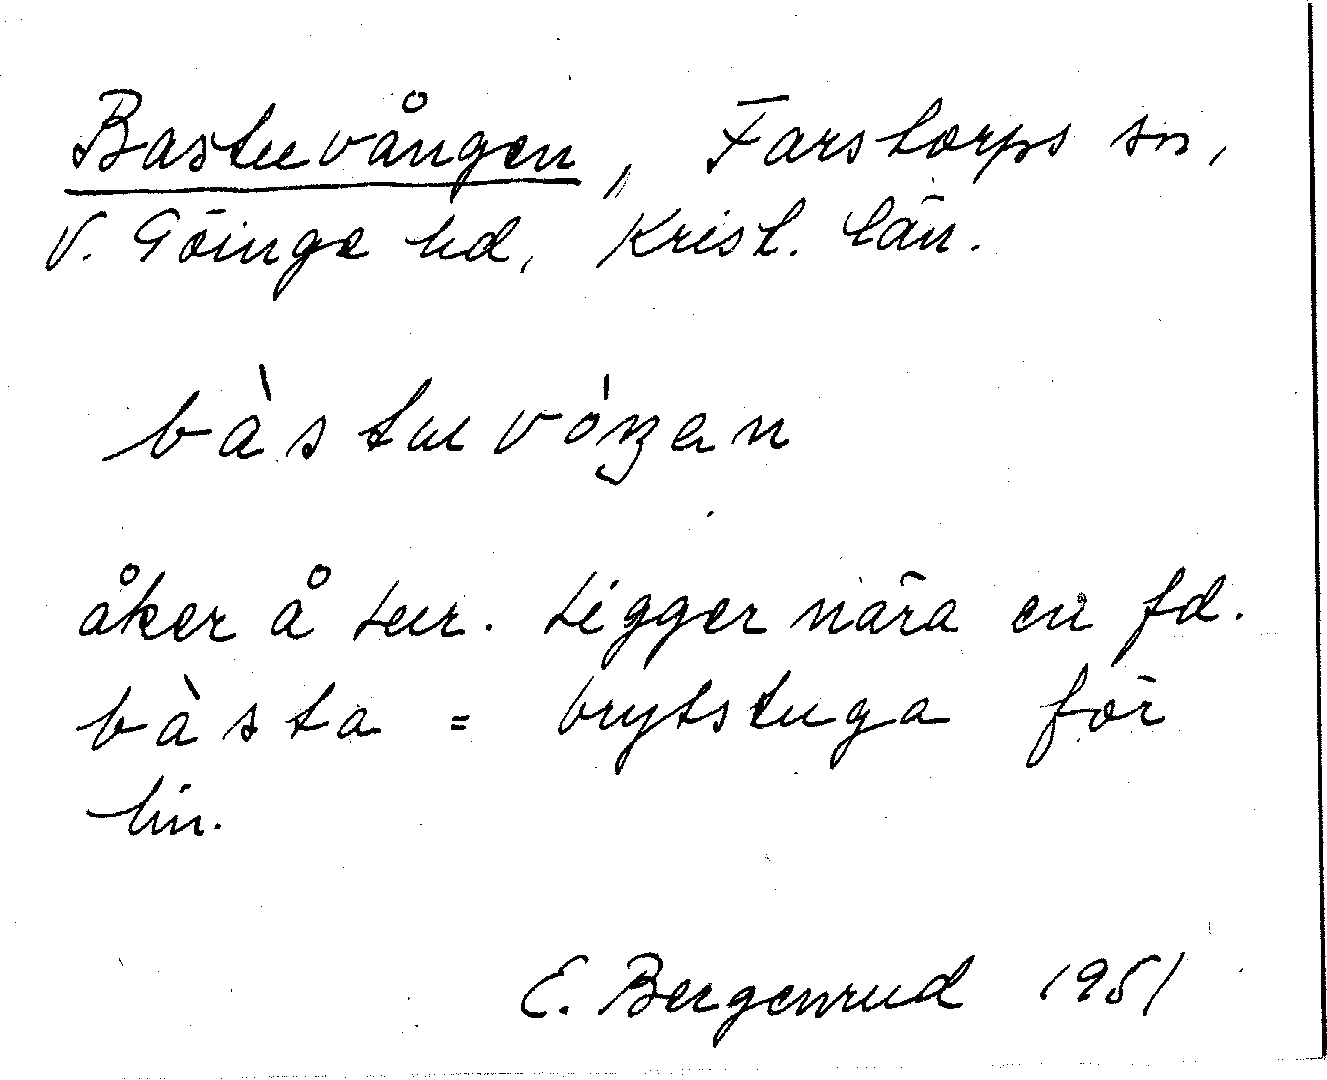 Bastuvången, Farstorps sn,
V. Göinge hd, Krist. län.
bàstuvóŋen
åker å Lur. Ligger nära en fd.
bàsta = brytstuga för
lin.
E. Bergenrud 1951